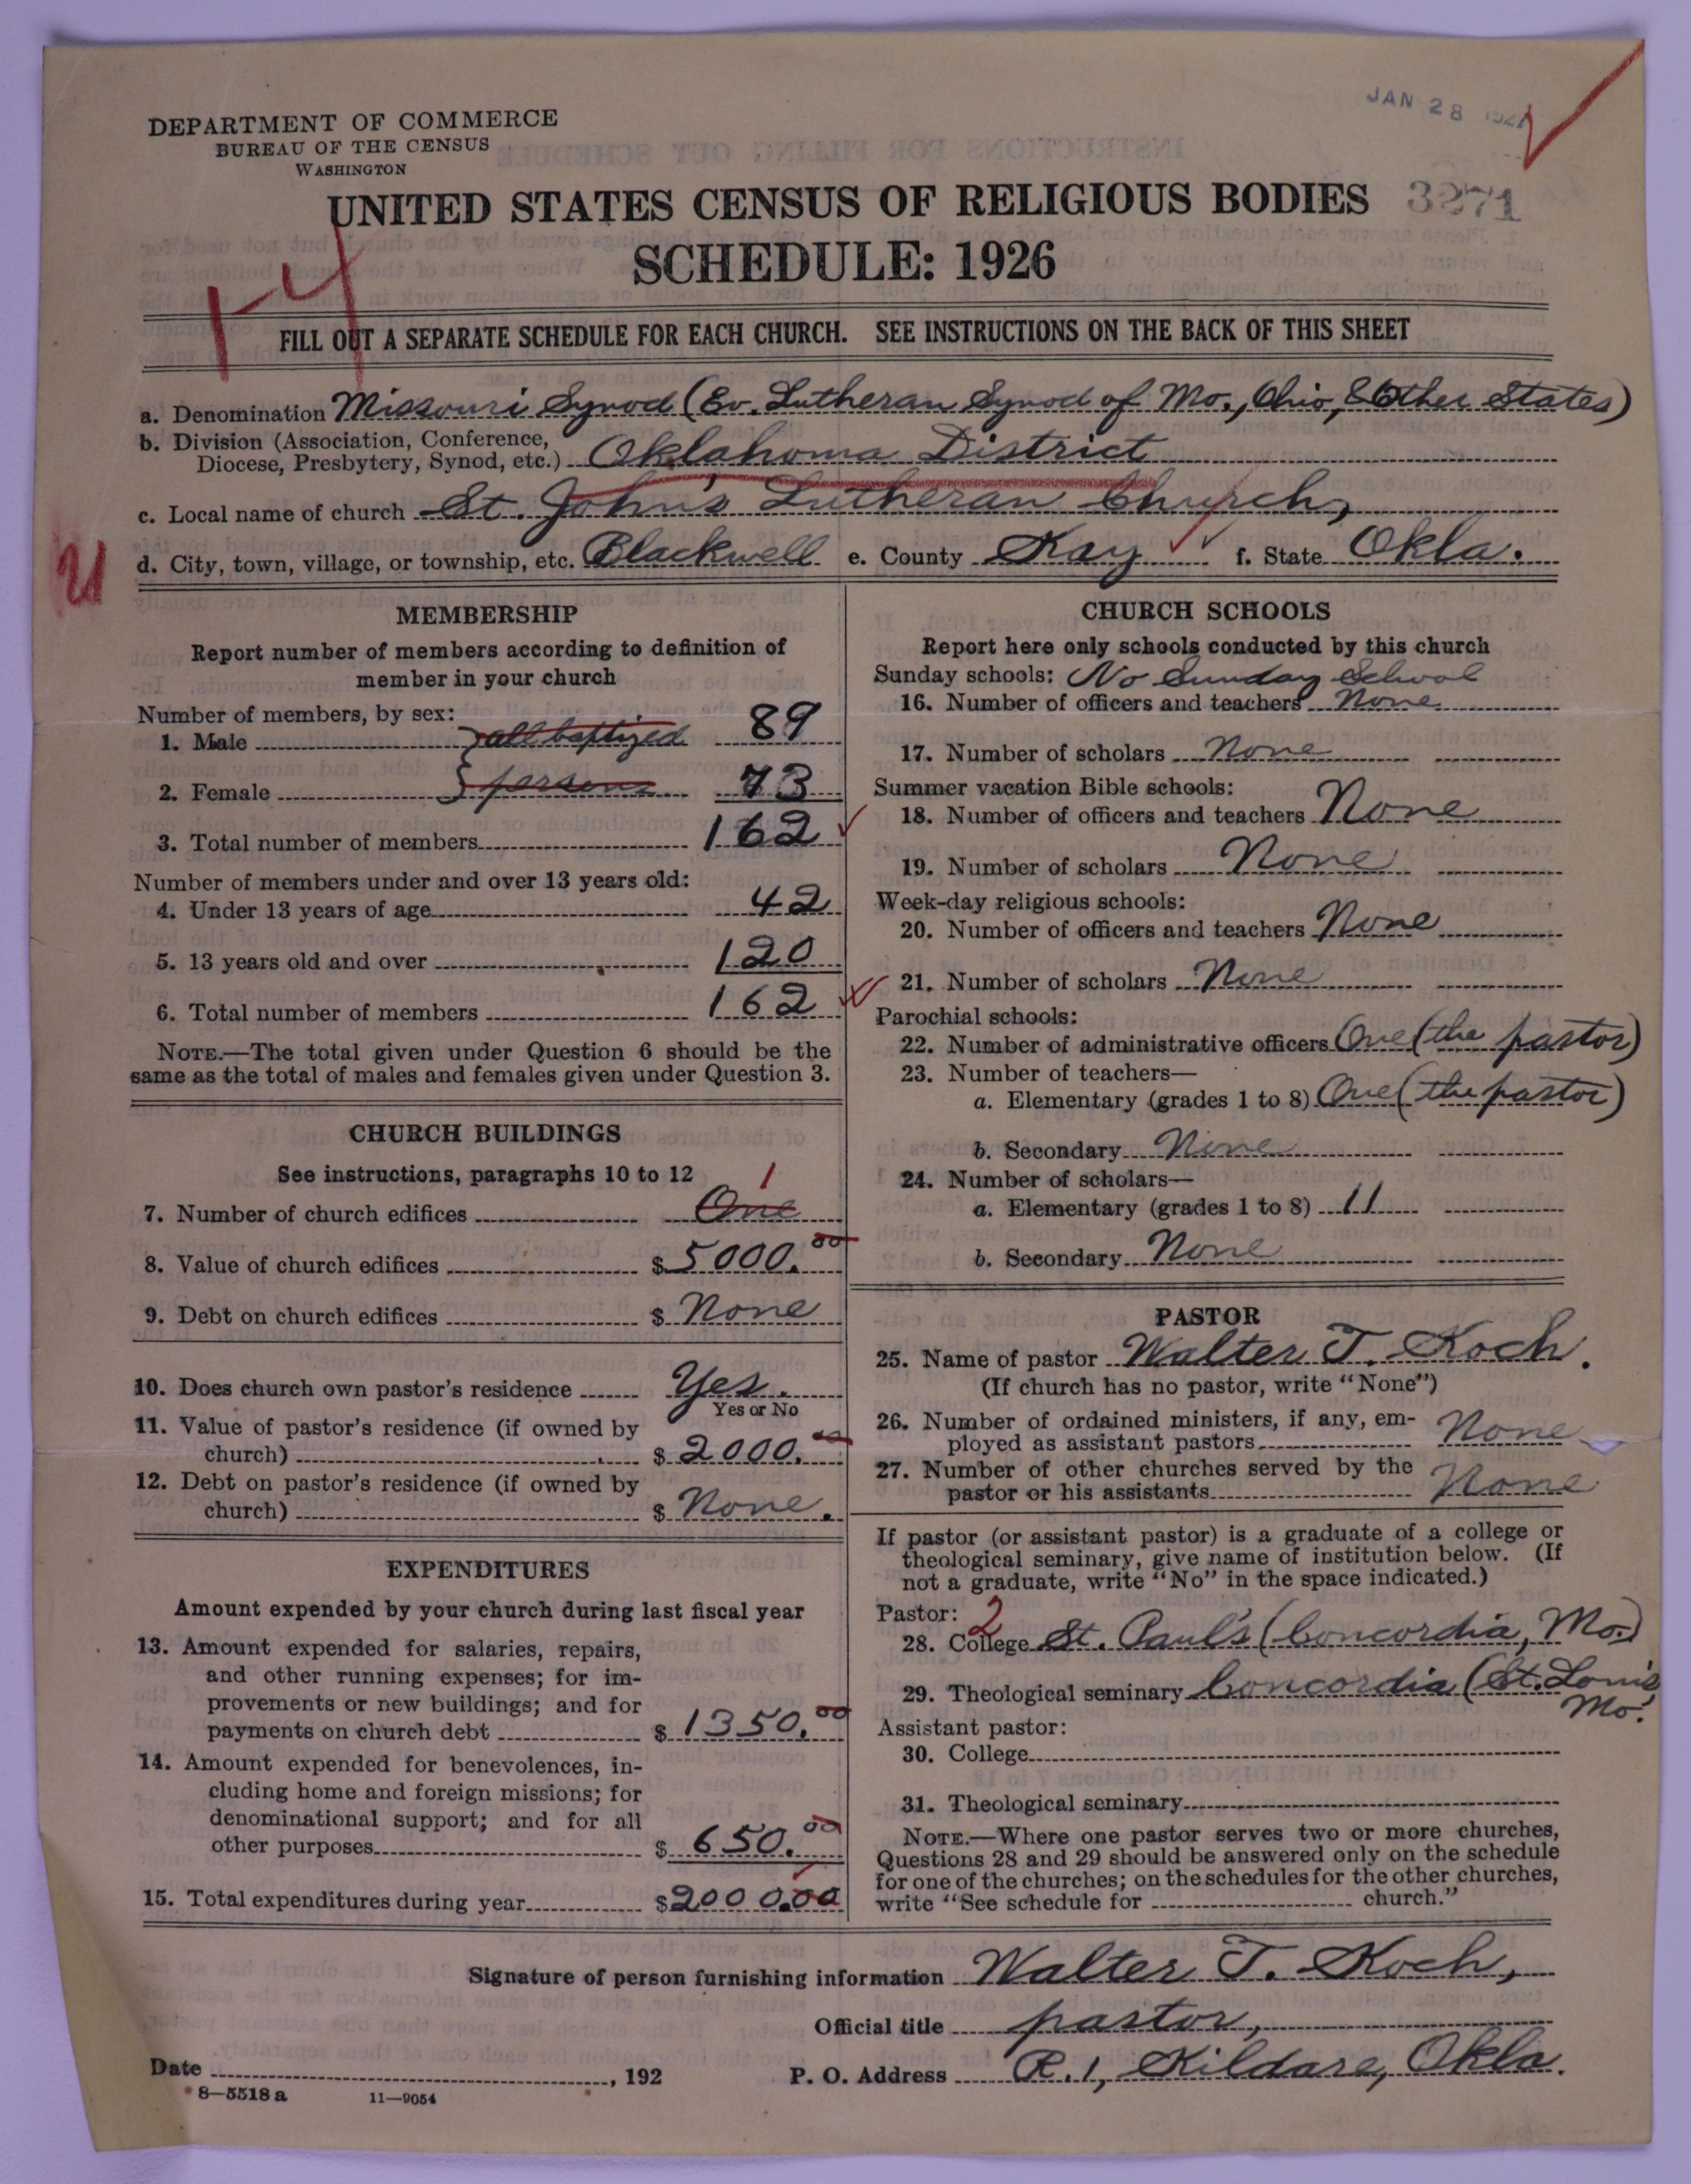 JAN 28
DEPARTMENT OF COMMERCE
BUREAU OF THE CENSUS
WASHINGTON
UNITED STATES CENSUS OF RELIGIOUS BODIES 3271
SCHEDULE: 1926
14
FILL OUT A SEPARATE SCHEDULE FOR EACH CHURCH. SEE INSTRUCTIONS ON THE BACK OF THIS SHEET
a. Denomination Missouri Synod (Ev. Lutheran Synod of Mo., Ohio, & Other States)
b. Division (Association, Conference,
Diocese, Presbytery, Synod, etc.) Oklahoma District
c. Local name of church St. John's Lutheran Church,
d. City, town, village, or township, etc. Blackwell e. County Kay f. State Okla.
MEMBERSHIP
Report number of members according to definition of
member in your church
Number of members, by sex:
1. Male } all baptized 89
2. Female } persons 73
3. Total number of members 162
Number of members under and over 13 years old:
4. Under 13 years of age 42
5. 13 years old and over 120
6. Total number of members 162
NOTE.—The total given under Question 6 should be the
same as the total of males and females given under Question 3.
CHURCH BUILDINGS
See instructions, paragraphs 10 to 12 1
7. Number of church edifices One
8. Value of church edifices $ 5000.00
9. Debt on church edifices $ None
10. Does church own pastor's residence Yes.
Yes or No
11. Value of pastor's residence (if owned by
church) $ 2000.00
12. Debt on pastor's residence (if owned by
church) $ None.
EXPENDITURES
Amount expended by your church during last fiscal year
13. Amount expended for salaries, repairs,
and other running expenses; for im-
provements or new buildings; and for
payments on church debt $ 1350.00
14. Amount expended for benevolences, in-
cluding home and foreign missions; for
denominational support; and for all
other purposes $ 650.00
15. Total expenditures during year $ 2000.00
CHURCH SCHOOLS
Report here only schools conducted by this church
Sunday schools: No Sunday School
16. Number of officers and teachers None
17. Number of scholars None
Summer vacation Bible schools:
18. Number of officers and teachers None
19. Number of scholars None
Week-day religious schools:
20. Number of officers and teachers None
21. Number of scholars None
Parochial schools:
22. Number of administrative officers One (the pastor)
23. Number of teachers—
a. Elementary (grades 1 to 8) One (the pastor)
b. Secondary None
24. Number of scholars—
a. Elementary (grades 1 to 8) 11
b. Secondary None
PASTOR
25. Name of pastor Walter T. Koch.
(If church has no pastor, write "None")
26. Number of ordained ministers, if any, em-
ployed as assistant pastors None
27. Number of other churches served by the
pastor or his assistants None
If pastor (or assistant pastor) is a graduate of a college or
theological seminary, give name of institution below. (If
not a graduate, write "No" in the space indicated.)
Pastor: 2
28. College St. Paul's (Concordia, Mo.)
29. Theological seminary Concordia (St. Louis
Mo.
Assistant pastor:
30. College
31. Theological seminary
NOTE.—Where one pastor serves two or more churches,
Questions 28 and 29 should be answered only on the schedule
for one of the churches; on the schedules for the other churches,
write "See schedule for church."
Signature of person furnishing information Walter T. Koch,
Official title pastor,
Date , 192 P. O. Address R. 1, Kildare, Okla.
8—5518 a 11—9054